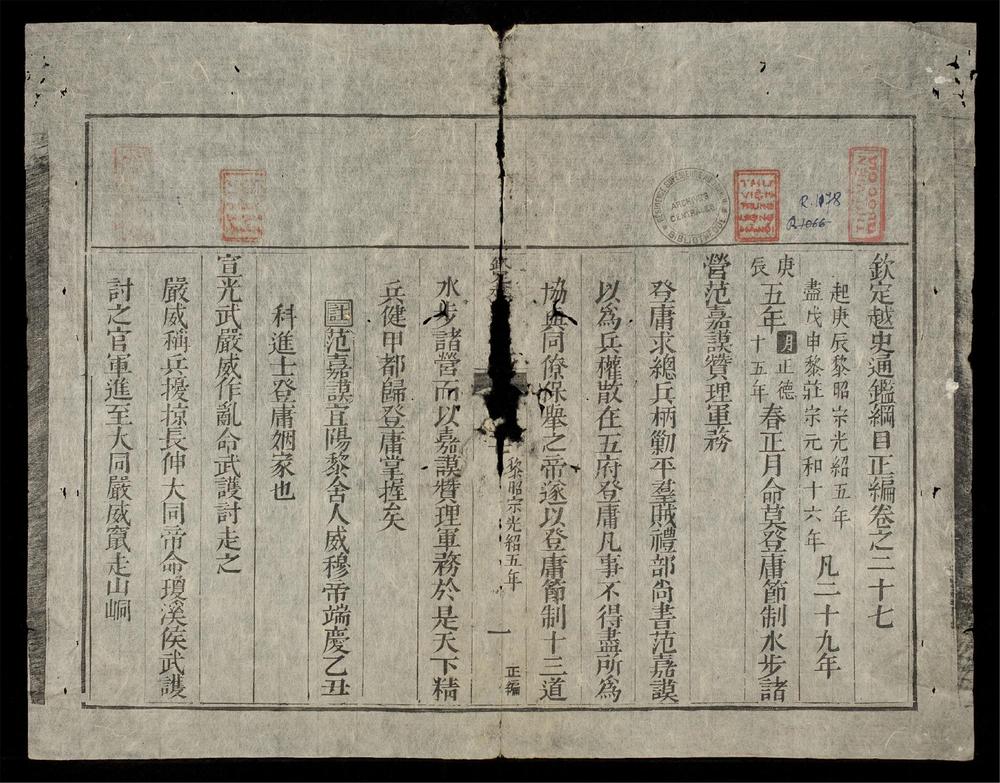 欽定越史通鑑綱目正編卷之二十七
起庚辰黎昭宗光紹五年
盡戊申黎莊宗元和十六年
凡二十九年
庚辰五年
明正德十五年
春正月命莫登庸節制水步諸
營范嘉謨贊理軍務
登庸求總兵柄勦平羣賊禮部尙書范嘉謨
以爲兵權散在五府登庸凡事不得盡所爲
協與同僚保舉之帝遂以登庸節制十三道
黎昭宗光紹五年
一
正編
水步諸營而以嘉謨贊理軍務於是天下精
兵健甲都歸登庸掌握矣
註范嘉謨宜陽黎舍人威穆帝端慶乙丑
科進士登庸姻家也
宣光武嚴威作亂命武護討走之
嚴威稱兵擾掠長伸大同帝命瓊溪侯武護
討之官軍進至大同嚴威竄走山峒
ARCHIVES
CENTRALES
BIBLIOTHEQUE
R.1178
R.1066